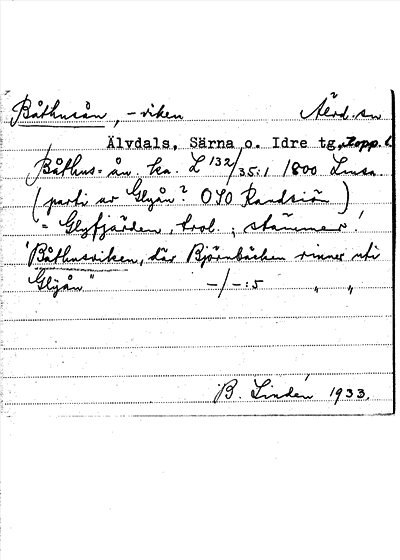 Båthusån, -viken Älvd. sn
Älvdals, Särna o. Idre tg,
Båthus-ån ha. L 132/35:1 1800 Linsa
(parti av Glyån? OSO Randsjön)
= Glyfjärden, trol.; stämmer!
'Båthusviken, där Björnbäcken rinner uti
Glyån" -/-:5 " "
B. Lindén 1933.